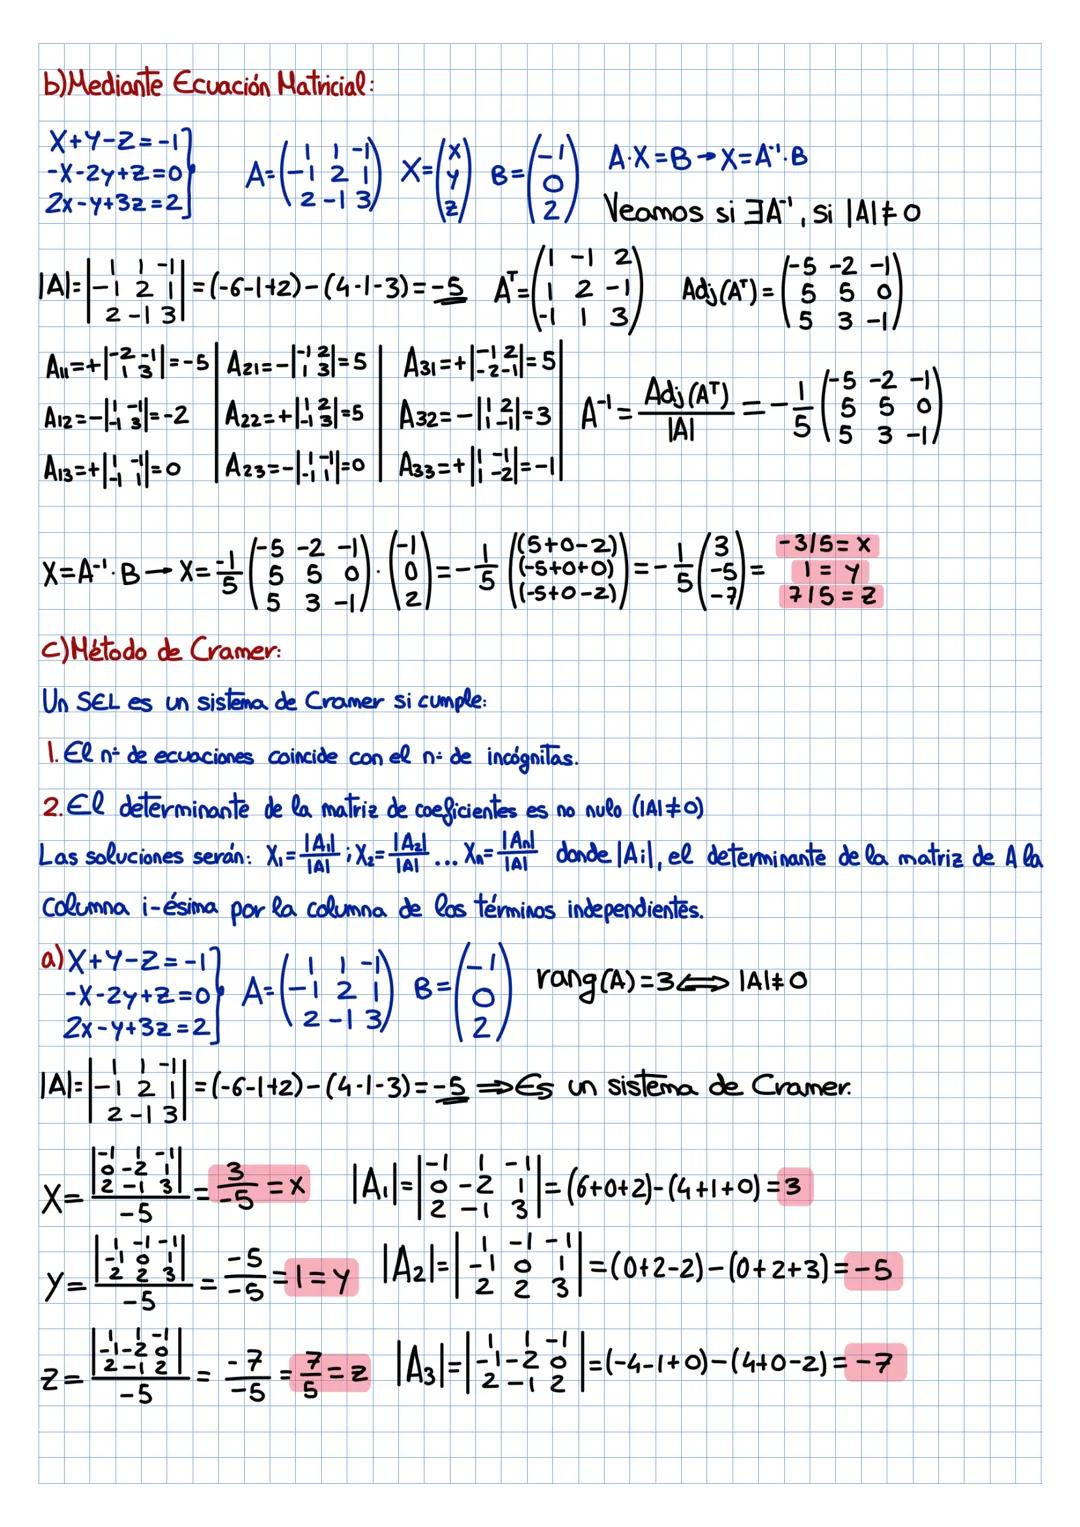 b) Mediante Ecuación Matricial:
X+Y-Z=-1
-X-2y+Z=0
2x-y+3z=2
A=(1 1 -1; -1 2 1; 2 -1 3) X=(x; y; z) B=(-1; 0; 2) A·X=B→X=A⁻¹·B
Veamos si ∃A⁻¹, si |A|≠0
|A|=|1 1 -1; -1 2 1; 2 -1 3|=(-6-1+2)-(4-1-3)=-5 Aᵀ=(1 -1 2; 1 2 -1; -1 1 3) Adj(Aᵀ)=(-5 -2 -1; 5 5 0; 5 3 -1)
A₁₁=+|-2 -1; 1 3|=-5 A₂₁=-|-1 2; 1 3|=5 A₃₁=+|-1 2; -2 -1|=5
A₁₂=-|1 -1; -1 3|=-2 A₂₂=+|1 2; -1 3|=5 A₃₂=-|1 2; 1 -1|=3 A⁻¹=Adj(Aᵀ)/|A|=-1/5(-5 -2 -1; 5 5 0; 5 3 -1)
A₁₃=+|1 -1; -1 1|=0 A₂₃=-|1 -1; -1 1|=0 A₃₃=+|1 -1; 1 -2|=-1
X=A⁻¹·B→X=-1/5(-5 -2 -1; 5 5 0; 5 3 -1)·(-1; 0; 2)=-1/5((5+0-2); (-5+0+0); (-5+0-2))=-1/5(3; -5; -7)= -3/5=x
1=y
7/5=z
c) Método de Cramer:
Un SEL es un sistema de Cramer si cumple:
1. El nº de ecuaciones coincide con el nº de incógnitas.
2. El determinante de la matriz de coeficientes es no nulo (|A|≠0)
Las soluciones serán: X₁=|A₁|/|A| ; X₂=|A₂|/|A| ... Xₙ=|Aₙ|/|A| donde |Ai|, el determinante de la matriz de A la
columna i-ésima por la columna de los términos independientes.
a) X+Y-Z=-1
-X-2y+Z=0
2x-y+3z=2
A=(1 1 -1; -1 2 1; 2 -1 3) B=(-1; 0; 2) rang(A)=3⟺|A|≠0
|A|=|1 1 -1; -1 2 1; 2 -1 3|=(-6-1+2)-(4-1-3)=-5 ⇒ Es un sistema de Cramer.
X=|-1 1 -1; 0 -2 1; 2 -1 3|/-5=3/-5=x |A₁|=|-1 1 -1; 0 -2 1; 2 -1 3|=(6+0+2)-(4+1+0)=3
y=|1 -1 -1; -1 0 1; 2 2 3|/-5=-5/-5=1=y |A₂|=|1 -1 -1; -1 0 1; 2 2 3|=(0+2-2)-(0+2+3)=-5
z=|1 1 -1; -1 -2 0; 2 -1 2|/-5=-7/-5=7/5=z |A₃|=|1 1 -1; -1 -2 0; 2 -1 2|=(-4-1+0)-(4+0-2)=-7